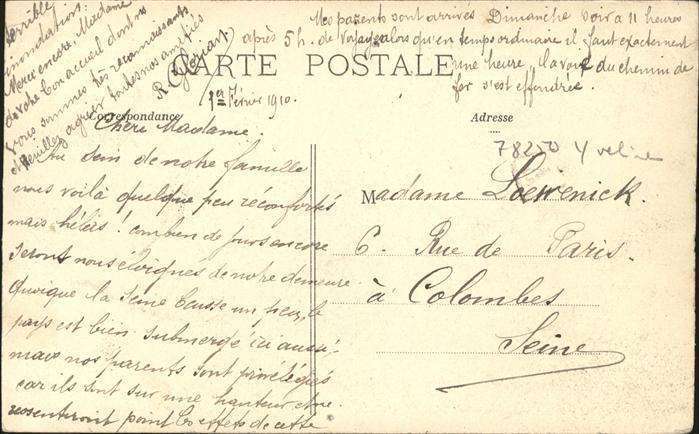 Mes parents sont arrivés Dimanche soir à 11 heures
après 5h. de voyage alors qu'en temps ordinaire il faut exactement
une heure, la voie du chemin de
fer s'est effondrée.
CARTE POSTALE
1er Février 1910.
Correspondance
Adresse
Chère Madame.
Au sein de notre famille
nous voilà quelque peu réconfortés
mais hélas ! combien de jours encore
serons nous éloignés de notre demeure.
Quoique la Seine baisse un peu, le
pays est bien submergé ici aussi;
mais nos parents sont privilégiés
car ils sont sur une hauteur et ne
ressentiront point les effets de cette
terrible
inondation.
Merci encore, Madame
de votre bon accueil dont nous
vous sommes très reconnaissants
et veuillez agréer toutes nos amitiés
78250 Yvelines
Madame Loewenick.
6. Rue de Paris.
à Colombes
Seine